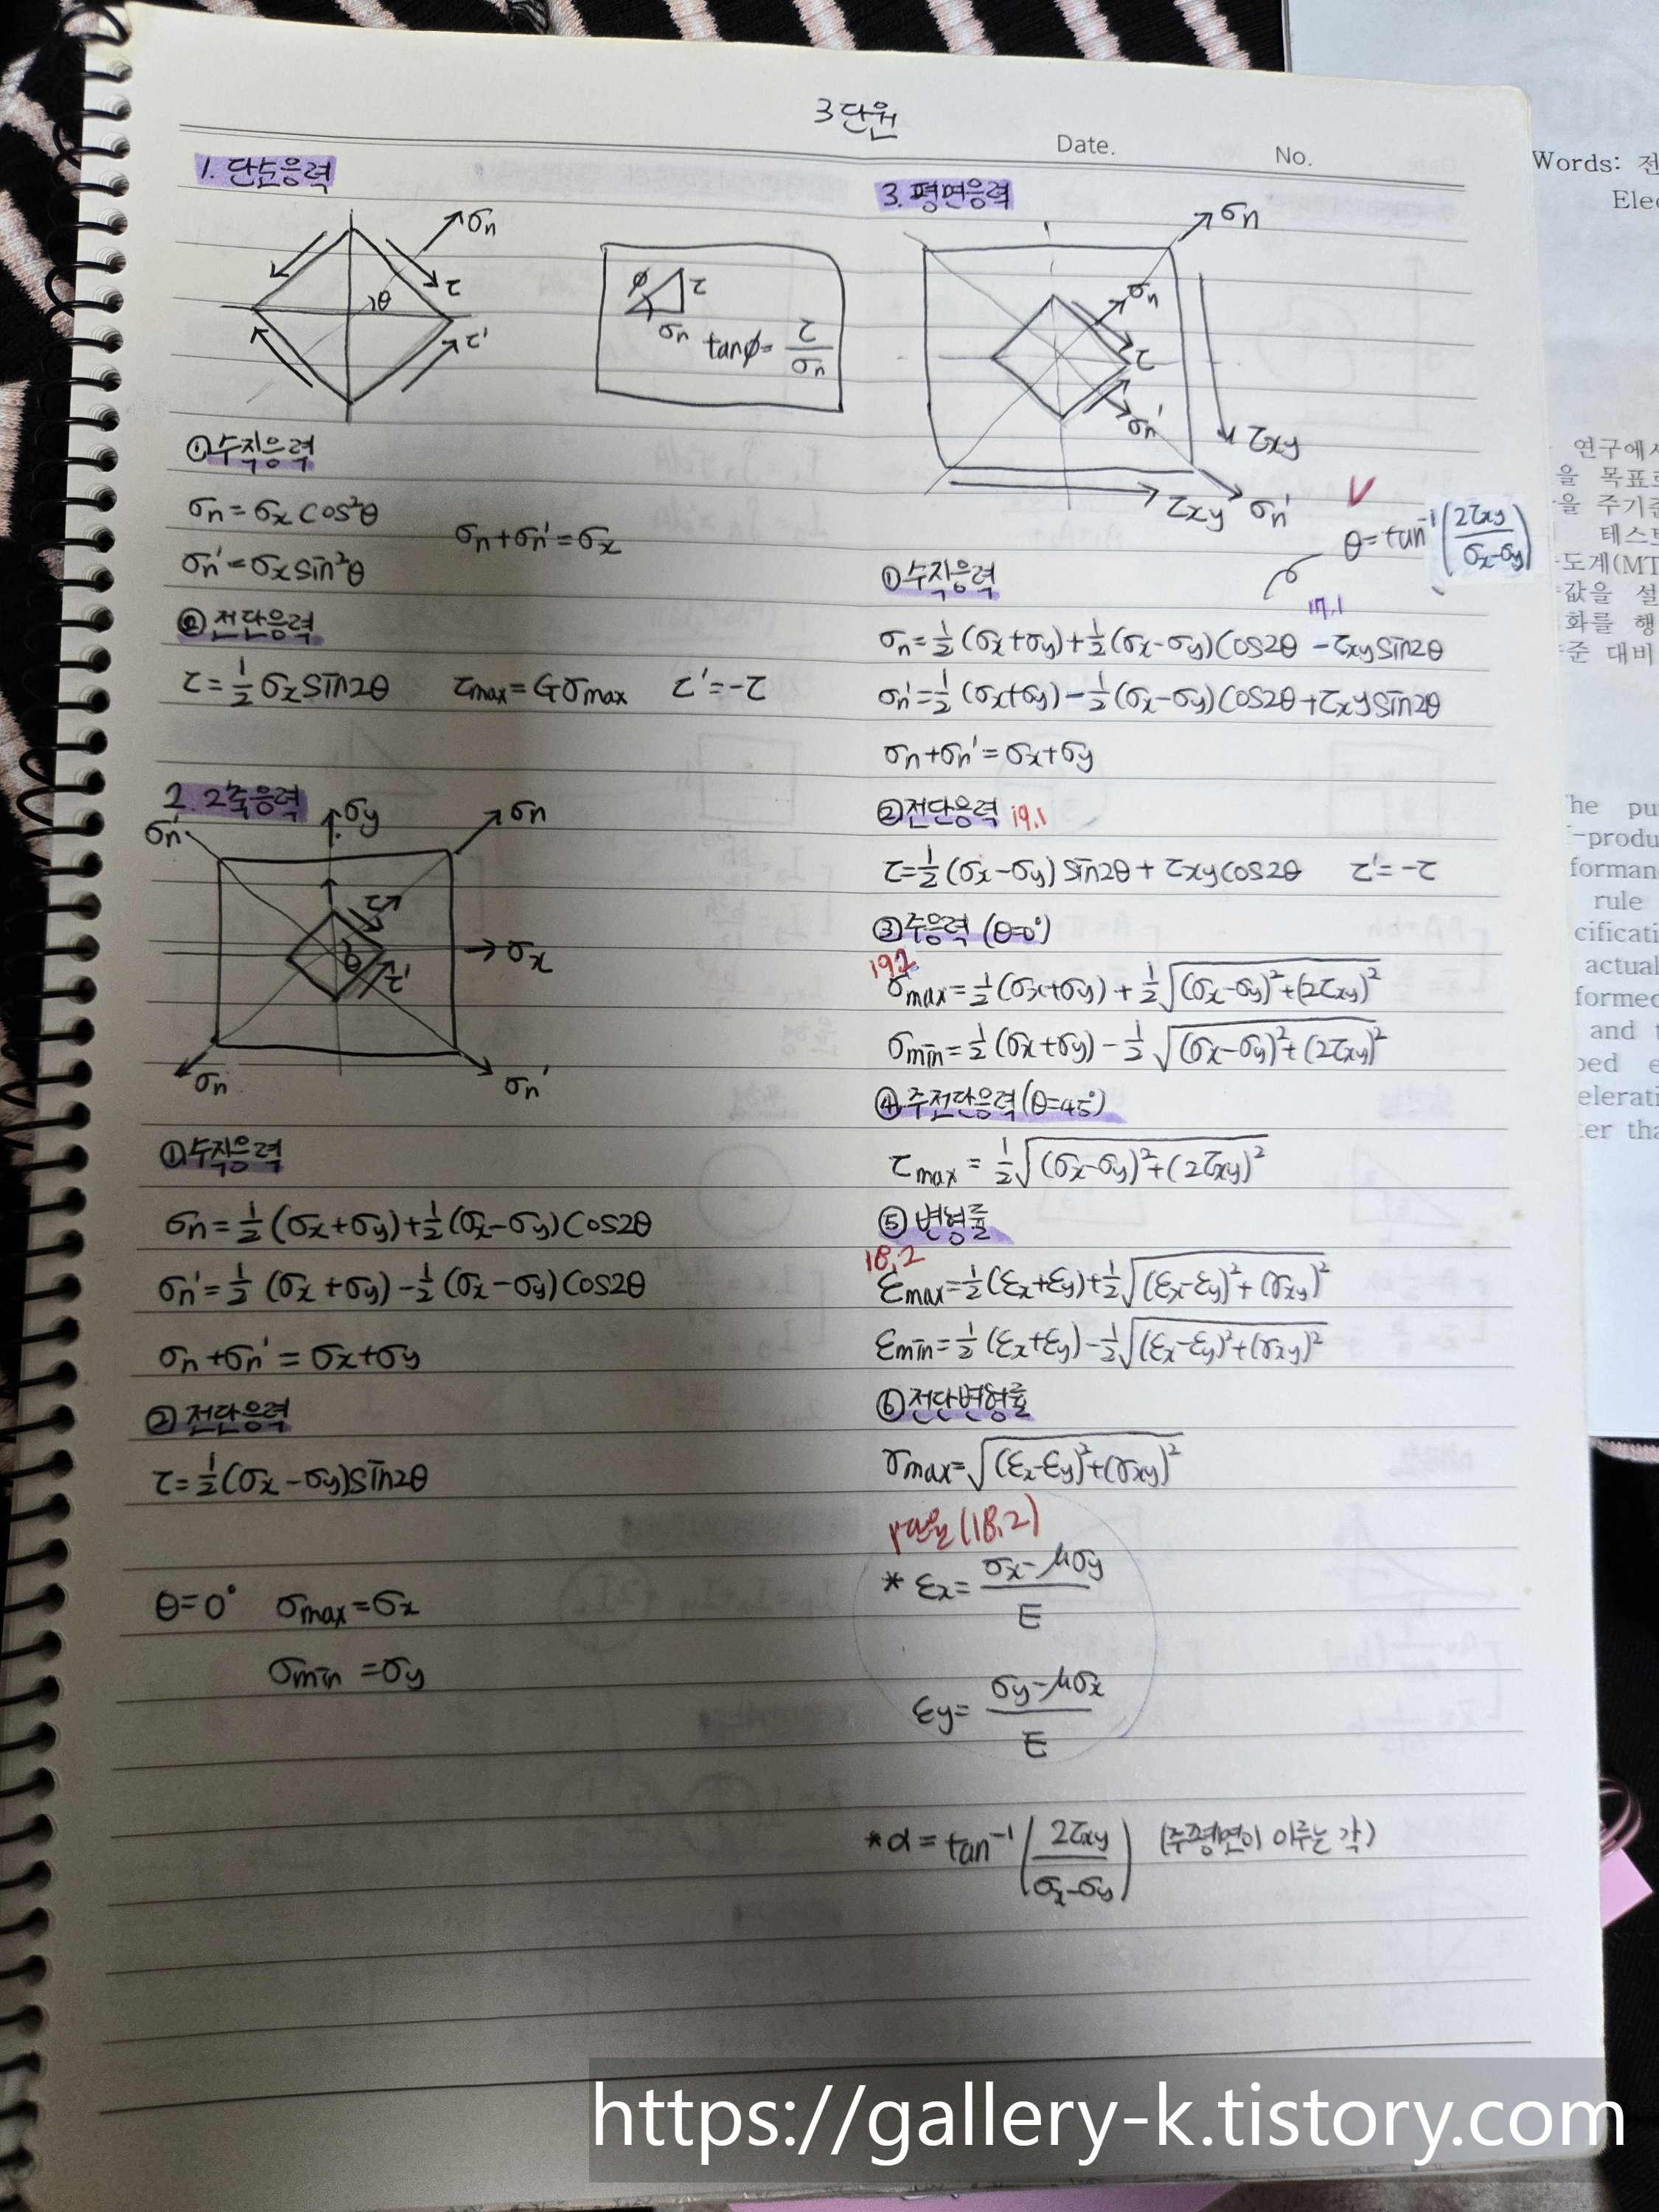 3단원
Date.
No.
1. 단순응력
σn
τ
θ
τ'
φ
τ
σn
tanφ= τ/σn
① 수직응력
σn=σx cos²θ
σn'=σx sin²θ
σn+σn'=σx
② 전단응력
τ=1/2 σx sin2θ
τmax=Gσmax
τ'=-τ
2. 2축응력
σn'
σy
σn
τ
σx
θ
τ'
σn
σn'
① 수직응력
σn=1/2 (σx+σy)+1/2(σx-σy)Cos2θ
σn'=1/2 (σx+σy)-1/2 (σx-σy)Cos2θ
σn+σn'=σx+σy
② 전단응력
τ=1/2(σx-σy)sin2θ
θ=0° σmax=σx
σmin =σy
3. 평면응력
σn
σn
τ
σn'
τxy
τxy
σn'
θ=tan⁻¹(2τxy/(σx-σy))
① 수직응력
17.1
σn=1/2 (σx+σy)+1/2(σx-σy)Cos2θ -τxy sin2θ
σn'=1/2 (σx+σy)-1/2(σx-σy)Cos2θ+τxy sin2θ
σn+σn'=σx+σy
② 전단응력 19.1
τ=1/2 (σx-σy) sin2θ+τxy cos2θ τ'=-τ
③ 주응력 (θ=0°)
19.2
σmax=1/2(σx+σy)+1/2√((σx-σy)²+(2τxy)²)
σmin=1/2 (σx+σy)-1/2√((σx-σy)²+(2τxy)²)
④ 주전단응력(θ=45°)
τmax = 1/2√((σx-σy)²+(2τxy)²)
⑤ 변형률
18.2
εmax=1/2(εx+εy)+1/2√((εx-εy)²+(γxy)²)
εmin=1/2 (εx+εy)-1/2√((εx-εy)²+(γxy)²)
⑥ 전단변형률
γmax=√((εx-εy)²+(γxy)²)
(18.2)
* εx= (σx-μσy)/E
εy= (σy-μσx)/E
*α= tan⁻¹(2τxy/(σx-σy)) (주평면이 이루는 각)
Words: 전
Elec
연구에서
을 목표로
을 주기준
테스트
도계(MT
값을 설
화를 행
준 대비
The pu
-produ
forman
rule
cificati
actual
formed
and t
ped e
elerati
ter tha
https://gallery-k.tistory.com